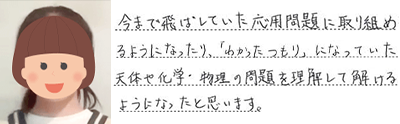 今まで飛ばしていた応用問題に取り組め
るようになったり、「わかったつもり」になっていた
天体や化学・物理の問題を理解して解ける
ようになったと思います。